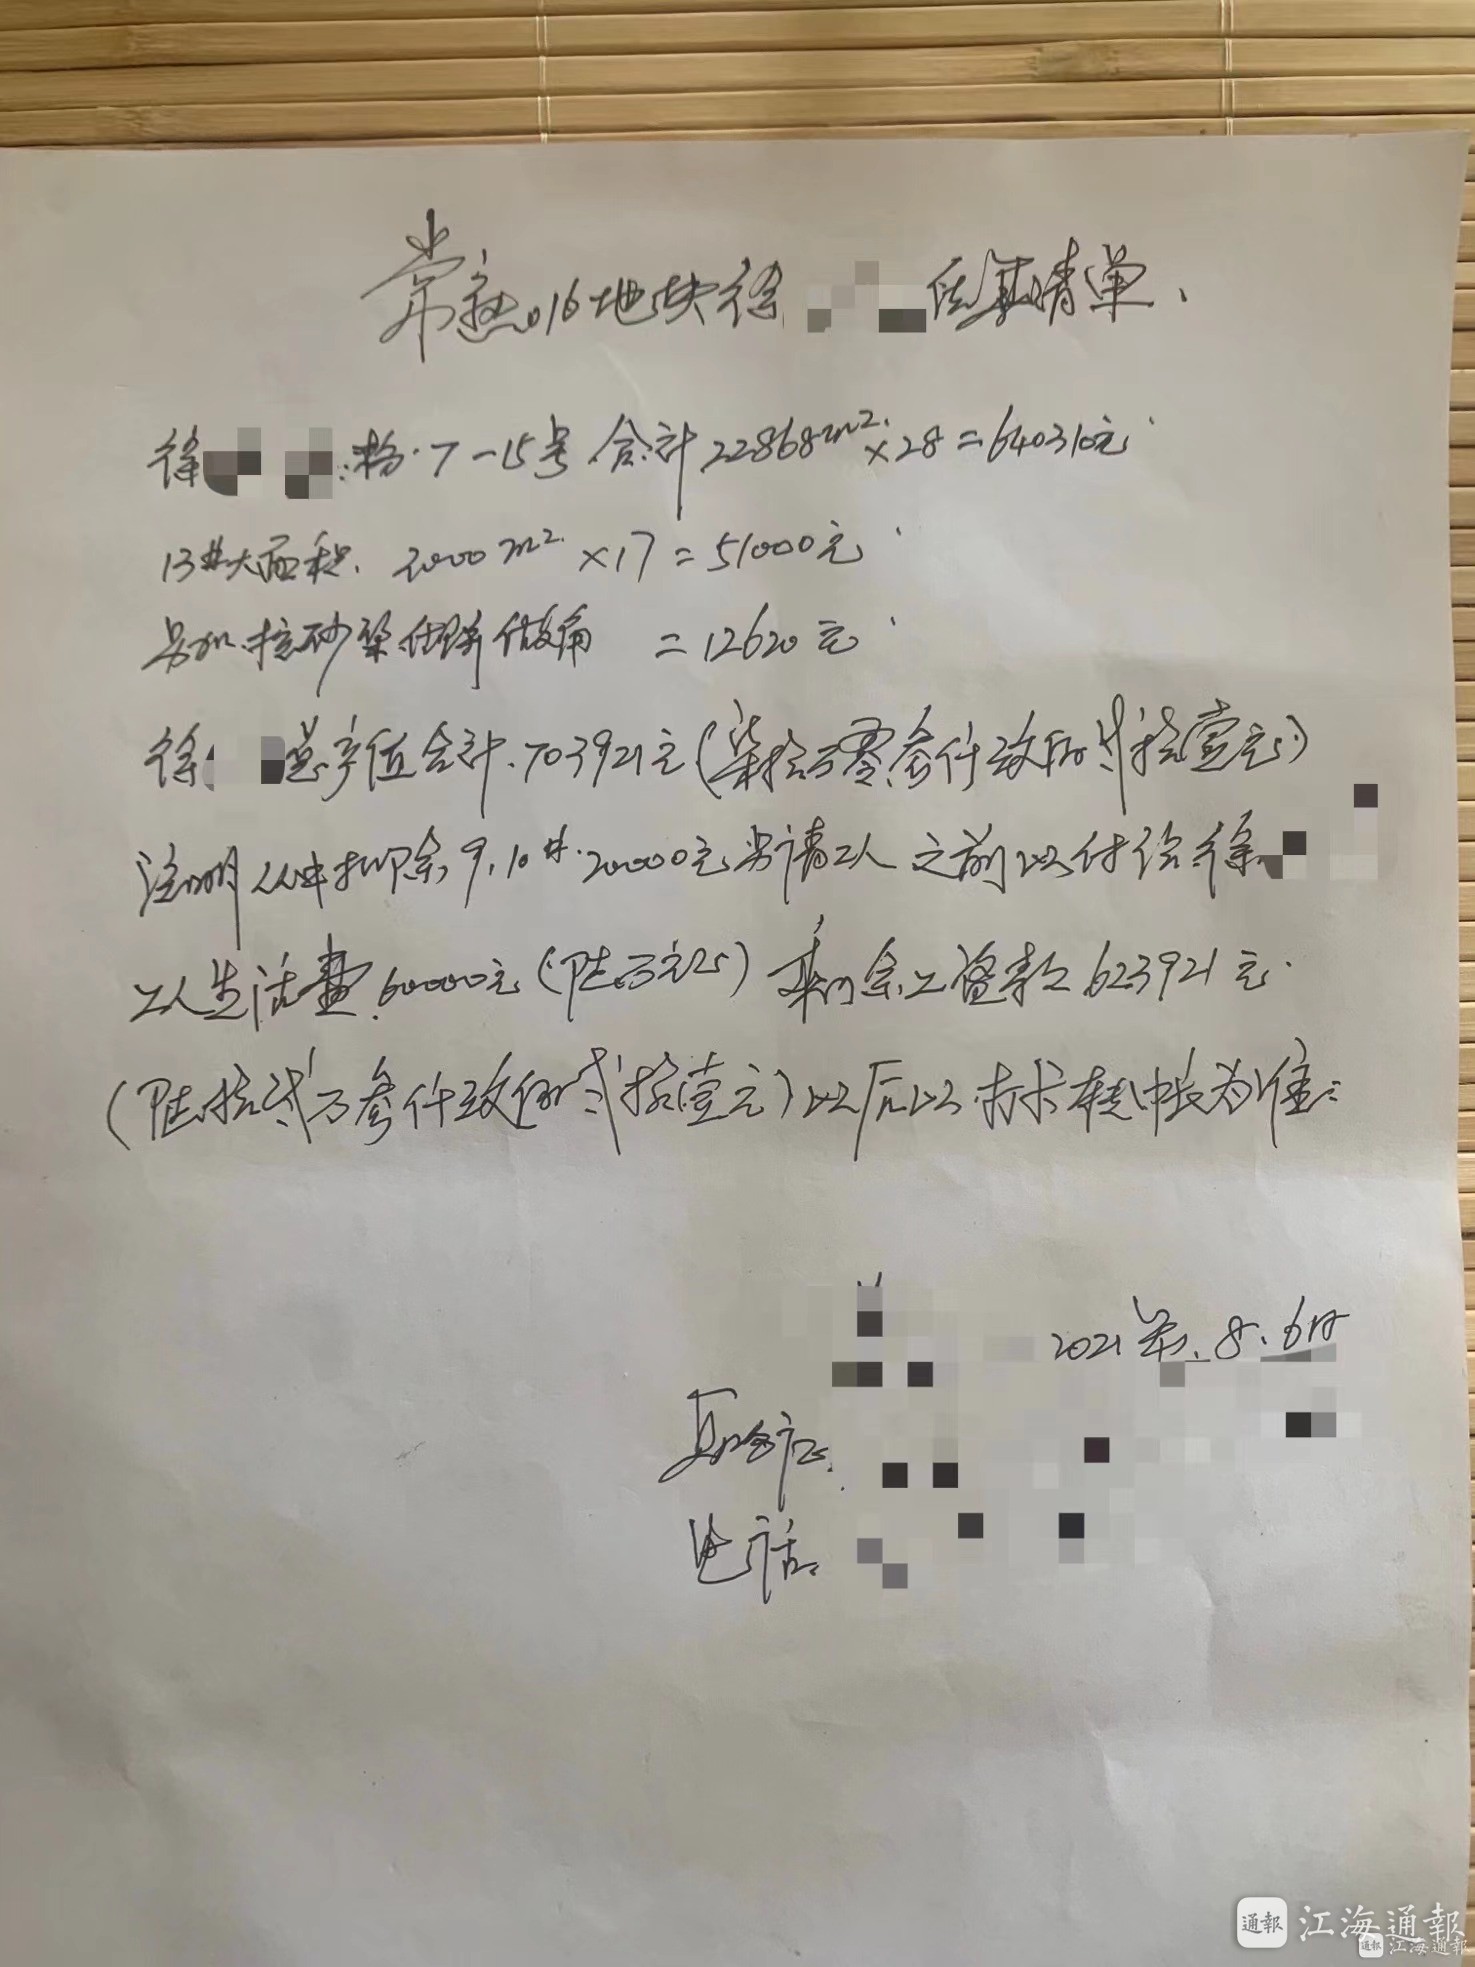 常熟016地块徐 结算清单、
徐 : 粉.7-15号 合计22868m²×28=640310元
13#大面积. 2000m²×17=51000元
另加 砂浆 做角 =12620元
徐 总产值合计.703921元(柒拾万零叁仟玖佰贰拾壹元)
注明从中扣除9.10#.20000元另请工人 之前以付给徐
工人生活费.60000元(陆万元正) 剩余工资款623921元.
(陆拾贰万叁仟玖佰贰拾壹元)以后以 为准
2021年.8.6日
身份证
电话
通報 江海通報
通報 江海通報